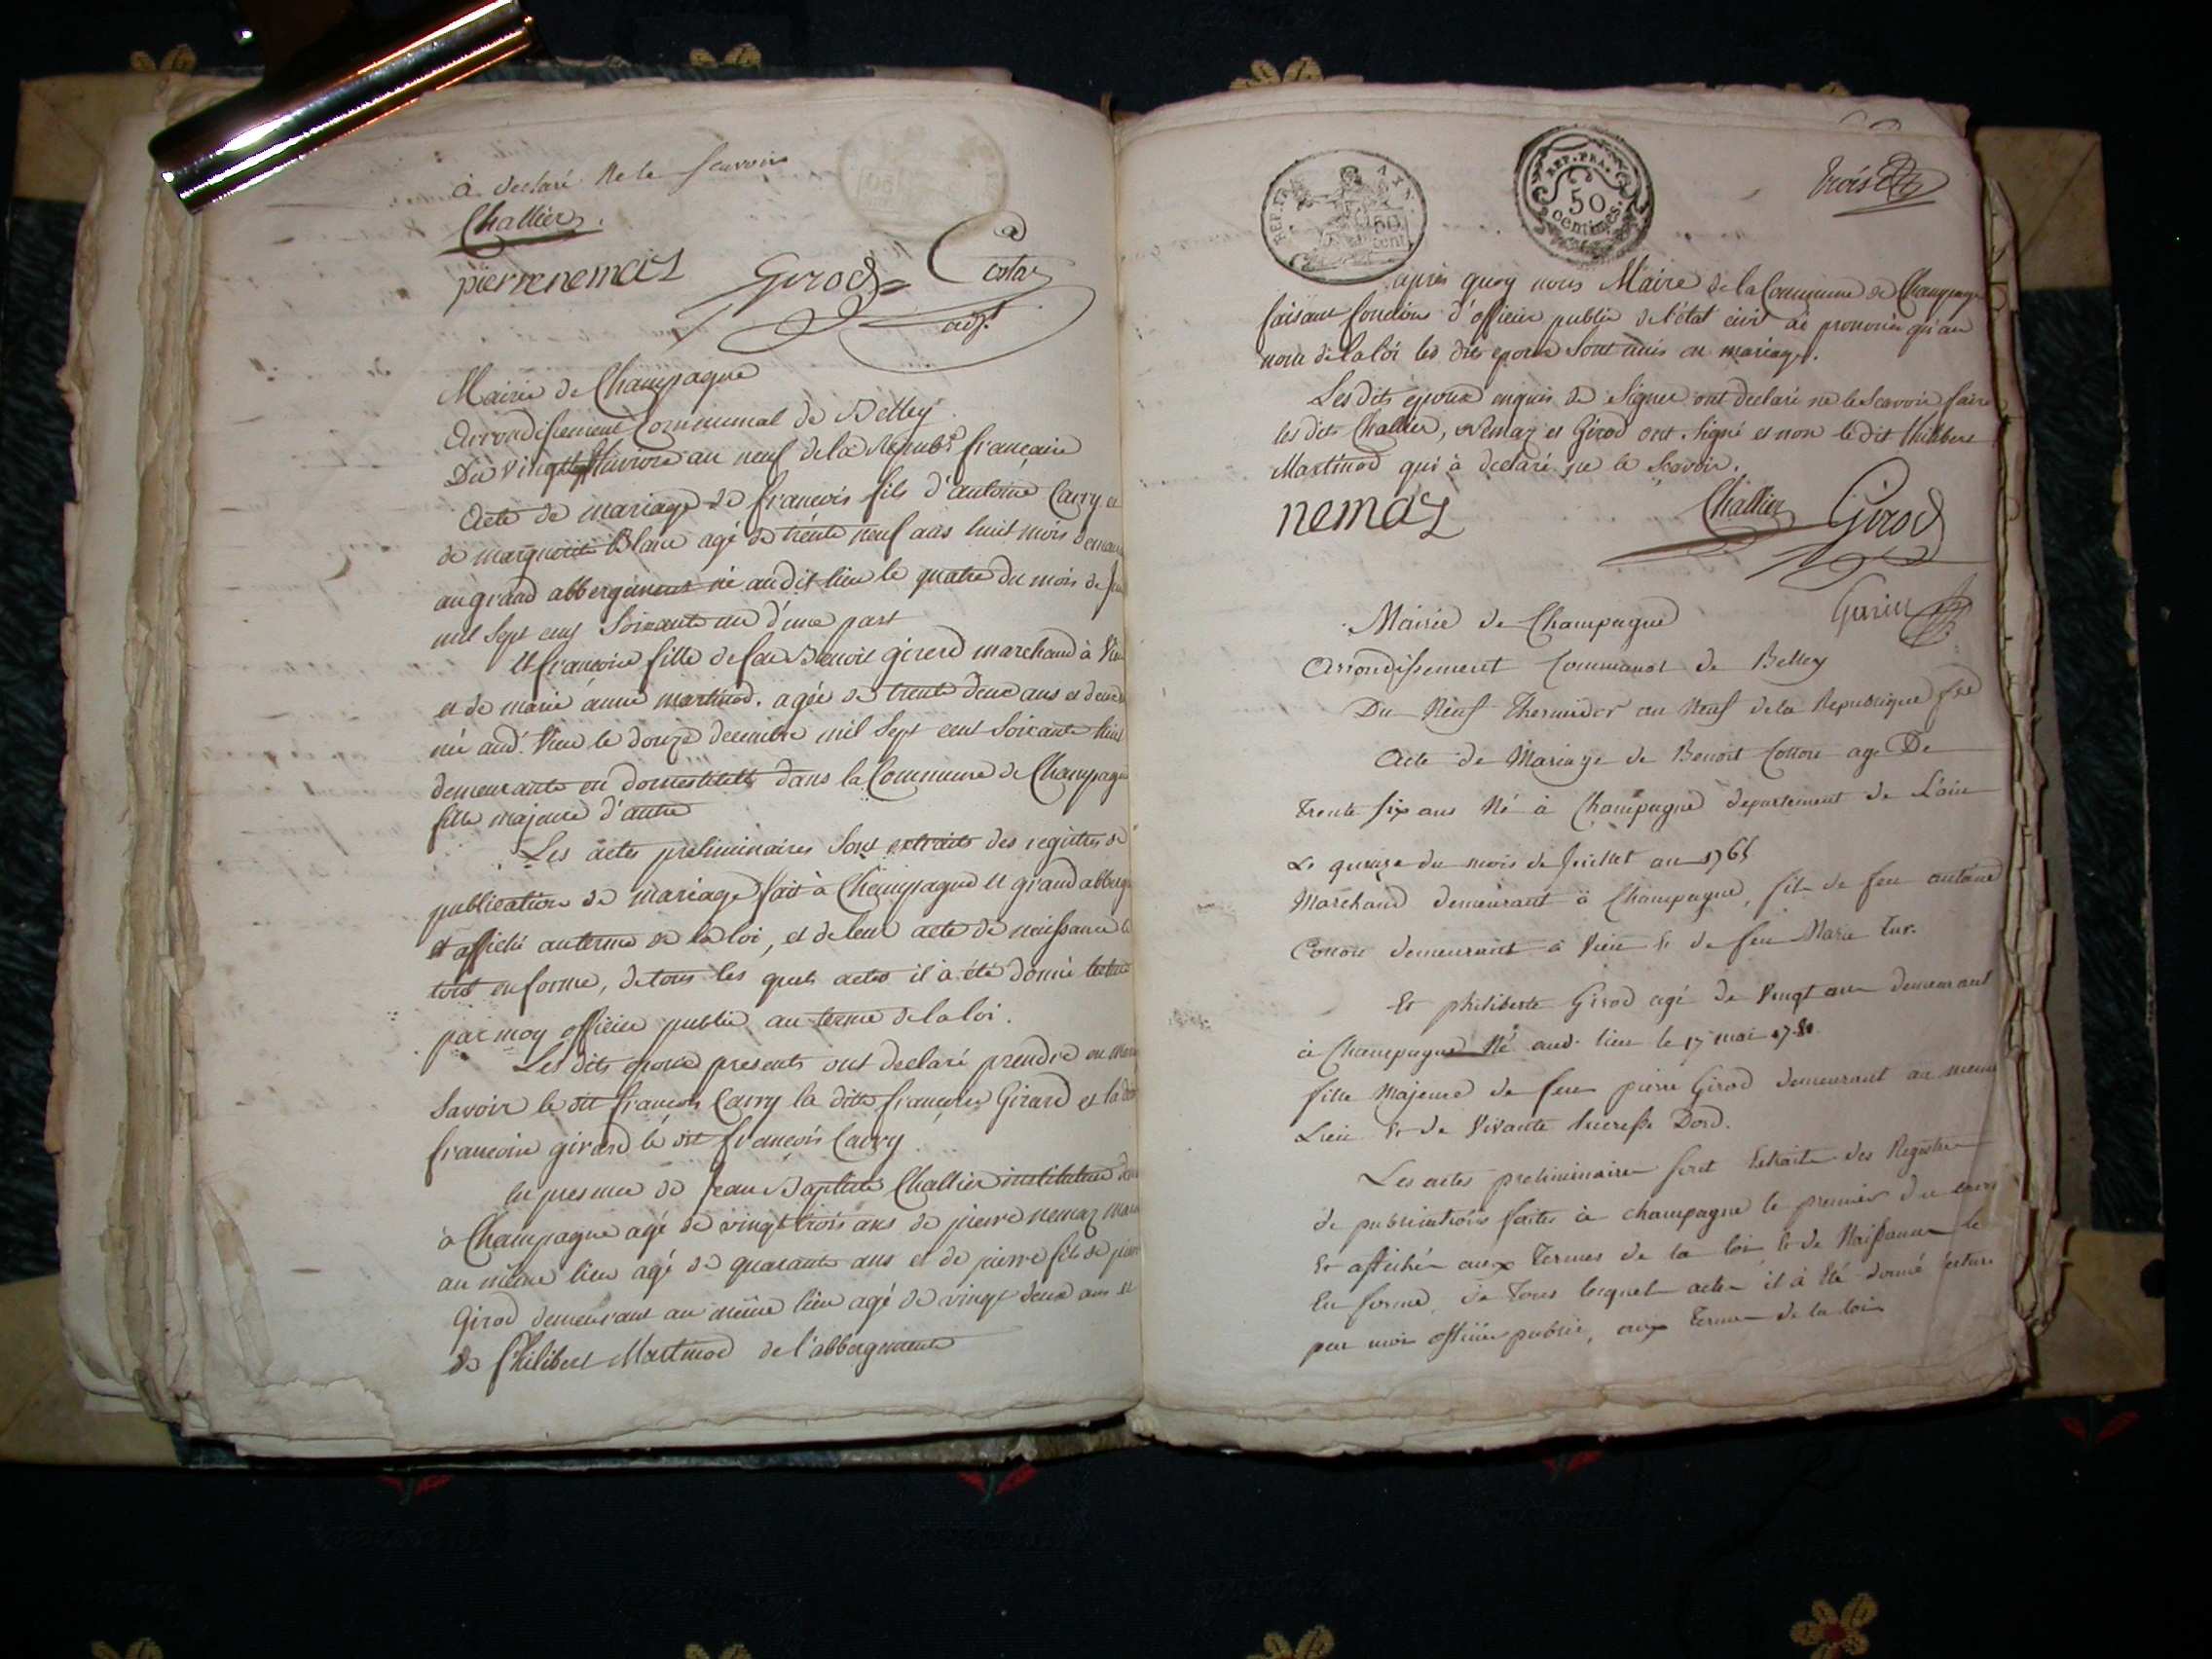 à declaré ne le scavoir
Challier
pierre nemaz
Girod
Costaz
adjt
Mairie de Champagne
Arrondissement Communal de Belley
Du vingt pluviose an neuf de la Republ francaise
Acte de mariage de francois fils d'antoine Carry et
de marguerite Blanc agé de trente neuf ans huit mois
au grand abbergement né au dit lieu le quatre du mois de
mil sept cent soixante un d'une part
Et francoise fille de feu Benoit girerd marchand à
et de marie anne martinod. agée de trente deux ans et deux
née aud. Vieu le douze decembre mil sept cent soixante huit
demeurante en domesticité dans la Commune de Champagne
fille majeure d'autre
Les actes preliminaires sont extraits des registres de
publication de mariage fait à Champagne et grand abberg
et affiché au terme de la loi, et de leur acte de naissance le
tout en forme, de tous les quels actes il à été donné lecture
par moy officier public au terme de la loi.
Les dits epoux presents ont declaré prendre en
Savoir le dit francois Carry la dite francoise Girard et la
francoise girard le dit francois Carry
En presence de Jean Baptiste Challier instituteur
à Champagne agé de vingt trois ans de pierre nemaz
au même lieu agé de quarante ans et de pierre fils de
Girod demeurant au même lieu agé de vingt deux ans et
de Philibert Martinod de l'abbergement
REP. FRA.
50
centimes.
AYN.
50
cent
trois
après quoy nous Maire de la Commune de Champagne
faisant fonctions d'officier public de l'état civil ai prononcé qu'au
nom de la loi les dits epoux sont unis en mariage.
Les dits epoux enquis de signer ont declaré ne le scavoir faire
les dits Challier, Nemaz et Girod ont signé et non le dit Philibert
Martinod qui à declaré ne le scavoir.
nemaz
Challier
Girod
Mairie de Champagne
Arrondissement Communal de Belley
Du Neuf Thermidor an Neuf de la Republique
Acte de Mariage de Benoit Cotton age De
Trente six ans Né à Champagne departement de L'ain
Le quinze du mois de Juillet an 1765
Marchand demeurant à Champagne, fils de feu antoine
Cotton demeurant à Vieu & de feu Marie
Et philiberte Girod agé de Vingt ans demeurant
à Champagne Né aud. lieu le 17 mai
fille Majeure de feu pierre Girod demeurant au meme
Lieu & de Vivante Dord.
Les actes preliminaires sont Extraits des Registres
de publications faites à champagne le premier du cours
Et affichés aux Termes de la loi & de Naissance le
En forme, de Tous lesquels actes il à été donné lecture
par moi officier public, aux Termes de la loi